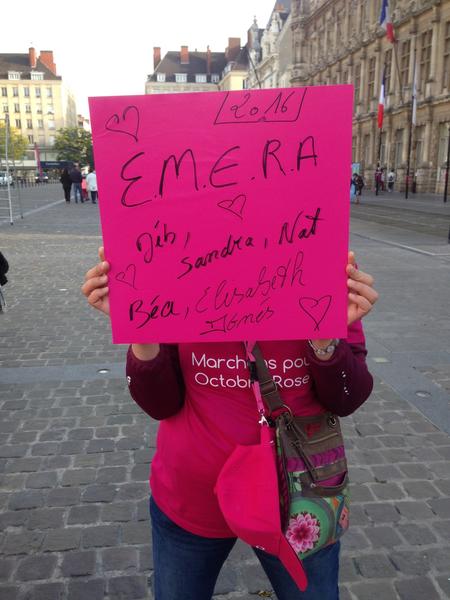 2016
E.M.E.R.A
Sandra, Nat
Béa, Elisabeth
Agnés
Marchons pou
Octobre Rose